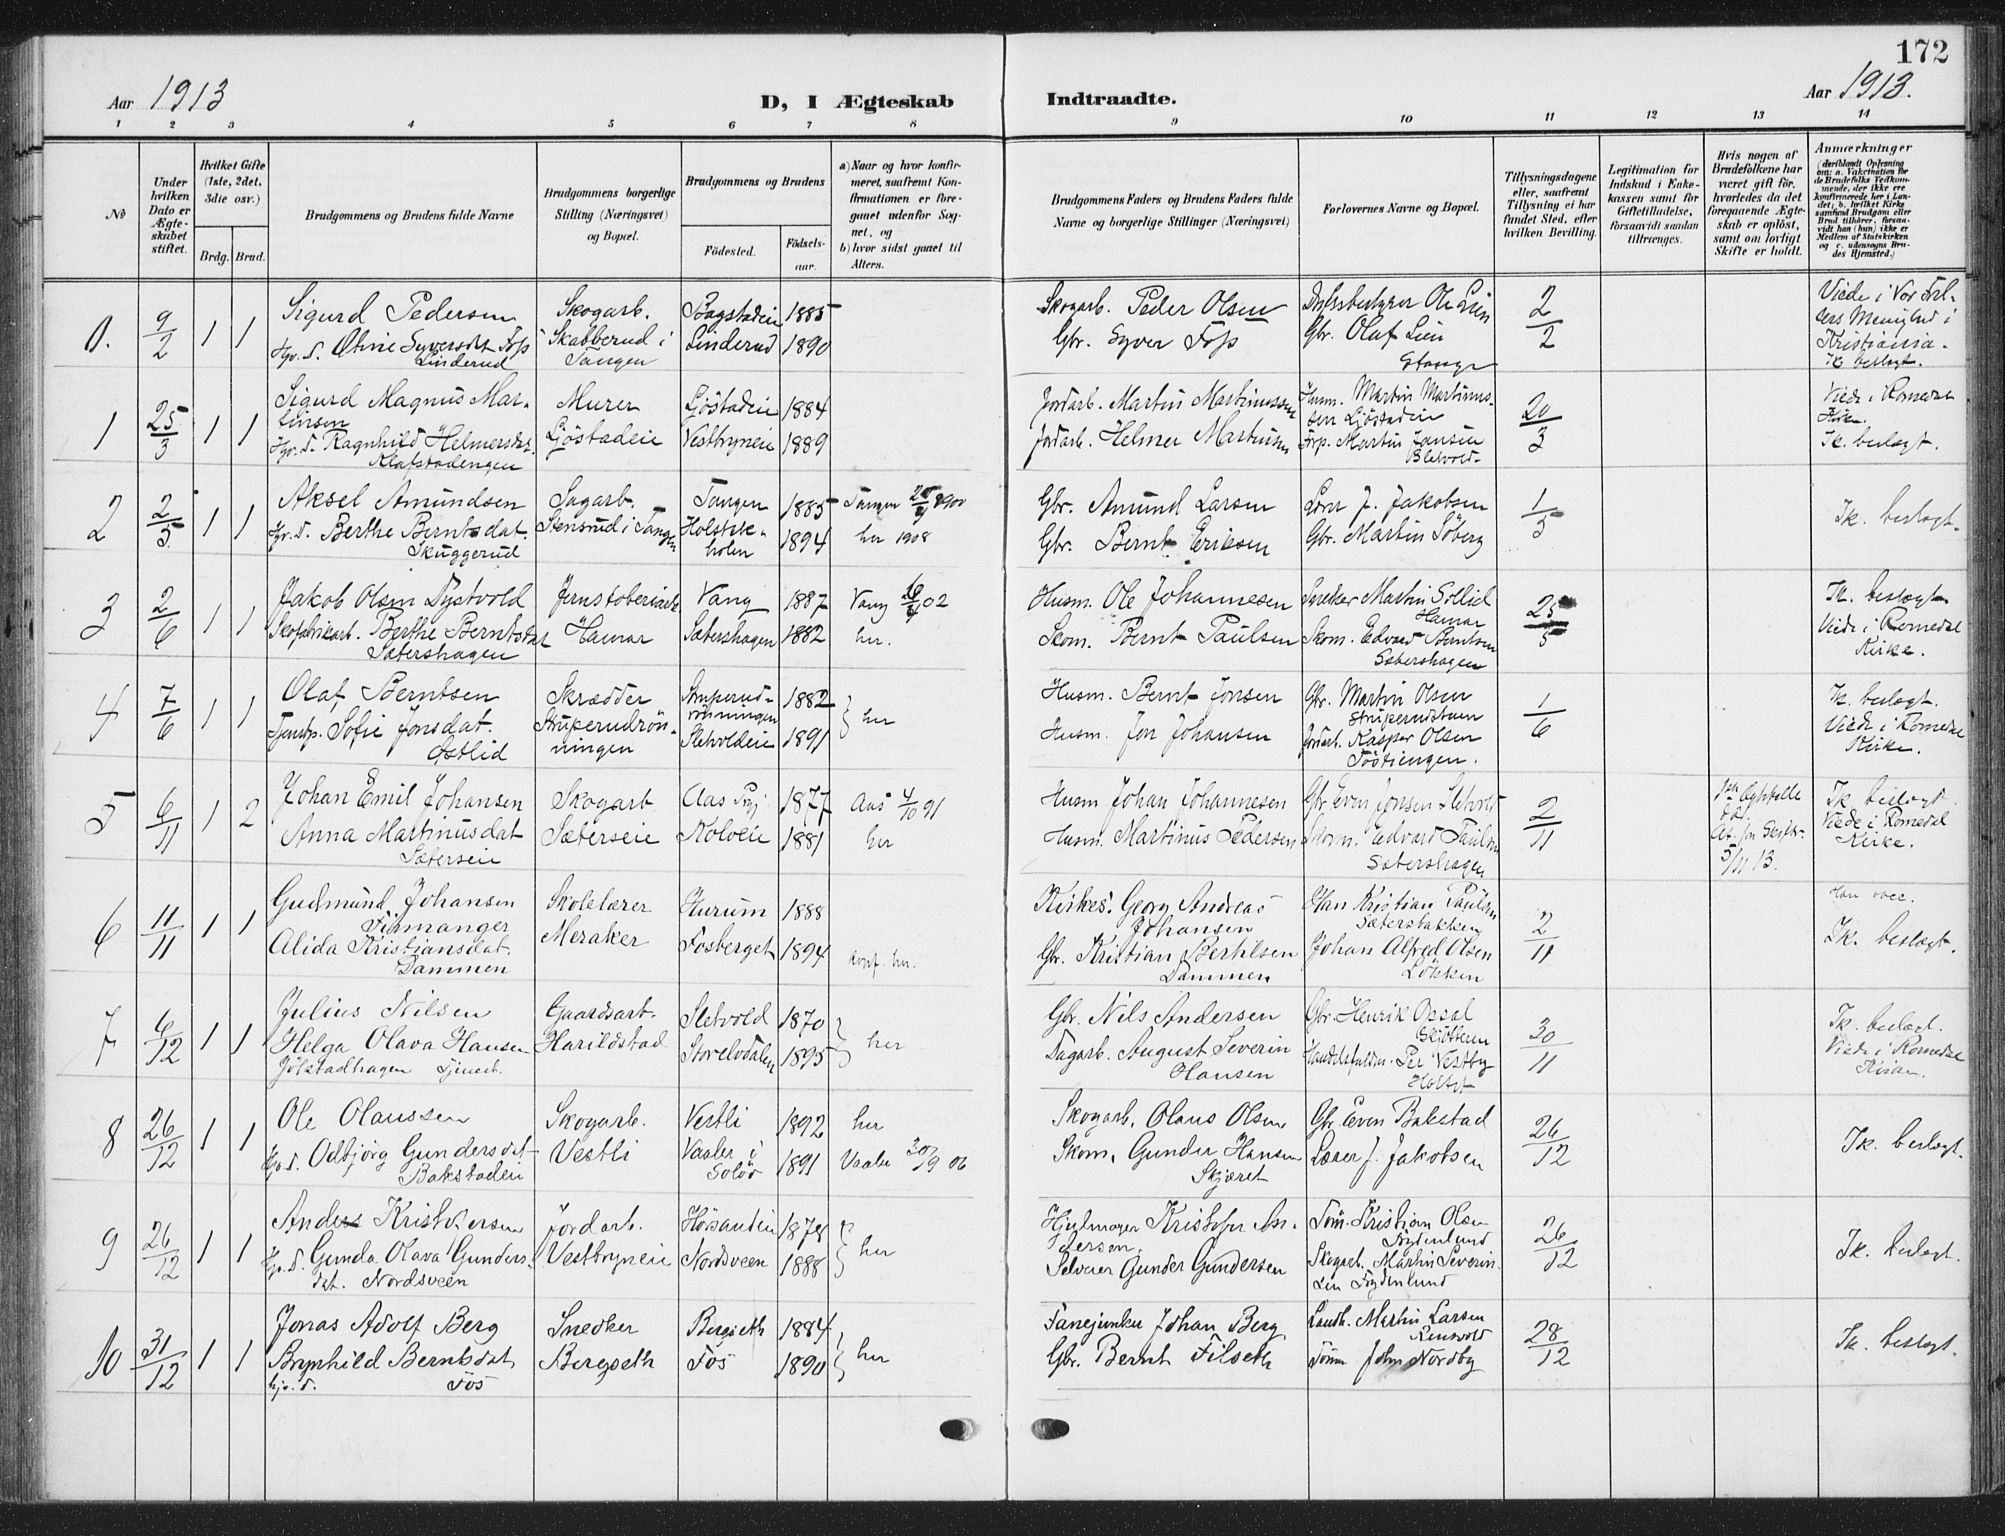 172
Aar 1913
D, I Ægteskab
Indtraadte.
Aar 1913.
1 2 3 4 5 6 7 8
9 10 11 12 13 14
No
Under hvilken Dato er Ægteskabet stiftet.
Hvilket Gifte (1ste, 2det, 3die osv.)
Brdg. Brud.
Brudgommens og Brudens fulde Navne
Brudgommens borgerlige Stilling (Næringsvei) og Bopæl.
Brudgommens og Brudens
Fødested.
Fødselsaar.
a) Naar og hvor konfirmeret, saafremt Konfirmationen er foregaaet udenfor Sognet, og
b) hvor sidst gaaet til Alters.
Brudgommens Faders og Brudens Faders fulde Navne og borgerlige Stillinger (Næringsvei)
Forlovernes Navne og Bopæl.
Tillysningsdagene eller, saafremt Tillysning ei har fundet Sted, efter hvilken Bevilling.
Legitimation for Indskud i Enkekassen samt for Giftetilladelse, forsaavidt saadan tiltrænges.
Hvis nogen af Brudefolkene har været gift før, hvorledes da det foregaaende Ægteskab er opløst, samt om lovligt Skifte er holdt.
Anmærkninger
(deriblandt Oplysning om: a. Vakcination for de Brudefolks Vedkommende, der ikke ere konfirmerede her i Landet; b. hvilket Kirkesamfund Brudgom eller Brud tilhører, forsaavidt han (hun) ikke er Medlem af Statskirken og c. udensogns Brudes Hjemsted.)
0. 9/2 1 1 Sigurd Pedersen Skogarb. Bagstadeie 1885
Oline Syversdt Fosp Skabberud i Linderud 1890
Linderud Tangen
Skogarb. Peder Olsen Ole Lien 2/2 Viede i Vor Frel-
Gbr. Syver Fosp Gbr. Olaf Lien sers Menighed i
Stange Kristiania.
Ik beslegt.
1 25/3 1 1 Sigurd Magnus Mar- Murer Ljøstadeie 1884
tinsen
Ragnhild Helmersdat. Ljøstadeie Vestbyneie 1889
Klafstadengen
Jordarb. Martin Martinussen Husm. Martin Martinus- 20/3 Viede i Romedal
sen Ljøstadeie Kirke.
Jordarb. Helmer Martinsen Martin Jansen Ik. beslegt.
2 2/5 1 1 Aksel Amundsen Sagarb. Tangen 1885 Tangen
Berthe Berntsdat. Stensrud i Tangen 1894 her 1908
Skuggerud holen
Gbr. Amund Larsen J. Jakobsen 1/5 Ik. beslegt.
Gbr. Bernt Eriksen Gbr. Martin Søberg
3 2/6 1 1 Jakob Olsen Tystvold Vang 1887 Vang 02
Berthe Berntsdat Hamar Sætershagen 1882 her.
Sætershagen
Husm. Ole Johannesen Martin Sollid 25/5 Ik. beslegt.
Hamar Viede i Romedal
Skom. Bernt Paulsen Skom. Edvard Berntsen Kirke.
Sætershagen
4 7/6 1 1 Olaf Berntsen Skrædder 1882 } her
Sofie Jonsdat. Struperudrøn- Sletvoldeie 1891
Østlid ningen
Husm. Bernt Jonsen Gbr. Martin Olsen 1/6 Ik. beslegt.
Struperudstuen Viede i Romedal
Husm. Jon Johansen Jordarb. Kasper Olsen Kirke.
5 6/11 1 2 Johan Emil Johansen Skogarb Aas 1877 Aas 4/10 91
Anna Martinusdat Sæterseie Kolveie 1881 her
Sæterseie
Husm Johan Johannesen Gbr. Even Jonsen Sletvold 2/11 Ik beslegt.
Husm. Martinus Pedersen Skom. Edvard Paulsen Viede i Romedal
Sætershagen 5/11 13. Kirke.
6 11/11 1 1 Gudmund Johansen Skolelærer Hurum 1888
Finmanger
Alida Kristiansdat. Meraker Fosberget 1894 konf. her.
Dammen
Kirkes. Georg Andreas Kristian Paulsen 2/11
Johansen Sæterstakken
Gbr. Kristian Berthelsen Johan Alfred Olsen Ik. beslegt.
Dammen Løkken
7 6/12 1 1 Julius Nilsen Gaardsarb. Sletvold 1870 } her
Helga Olava Hansen Harildstad Storelvdalen 1895
Jølstadhagen
Gbr. Nils Andersen Gbr. Henrik Opsal 30/11 Ik. beslegt.
Dagarb. August Severin Per Vestby Viede i Romedal
Hansen
8 26/12 1 1 Ole Olaussen Skogarb. Vestli 1892 her
Odbjørg Gundersdt Vestli Vaaler i 1891 Vaaler 06
Bakstadeie Solør
Skogarb. Olaus Olsen Gbr. Even Bakstad 26/12 Ik. beslegt.
Skom. Gunder Hansen Lærer J. Jakobsen
Skjæret
9 26/12 1 1 Anders Kristofersen Jordarb. 1878 } her
Gunda Olava Gunders- Vestbyneie Nordsveen 1888
dat. Nordsveen
Kristofer An- Tøm. Kristian Olsen 26/12 Ik. beslegt.
dersen Frydenlund
Selveier Gunder Gundersen Skogarb. Martin Severin-
sen Frydenlund
10 31/12 1 1 Jonas Adolf Berg Snedker Bergseth 1884 } her
Brynhild Berntsdat Bergseth Fos 1890
Fos
Fanejunker Johan Berg Landb. Martin Larsen 28/12 Ik. beslegt.
Gbr. Bernt Filseth John Nordby